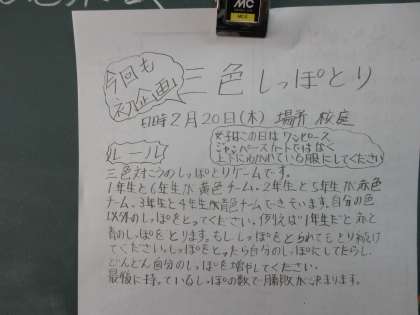 MC
今回も
初企画!
三色しっぽとり
日時2月20日(木) 場所 校庭
女子はこの日はワンピース
ジャンパースカートではなく
上下にわかれている服にしてください
ルール
三色対こうのしっぽとりゲームです。
1年生と6年生が黄色チーム、2年生と5年生が赤色
チーム、3年生と4年生が青色チームできそいます。自分の色
以外のしっぽをとってください。例えば1年生だと赤と
青のしっぽをとります。もししっぽをとられてもとり続け
てください。しっぽをとったら自分のしっぽにしてたらし、
どんどん自分のしっぽを増やしてください。
最後に持っているしっぽの数で勝敗が決まります。